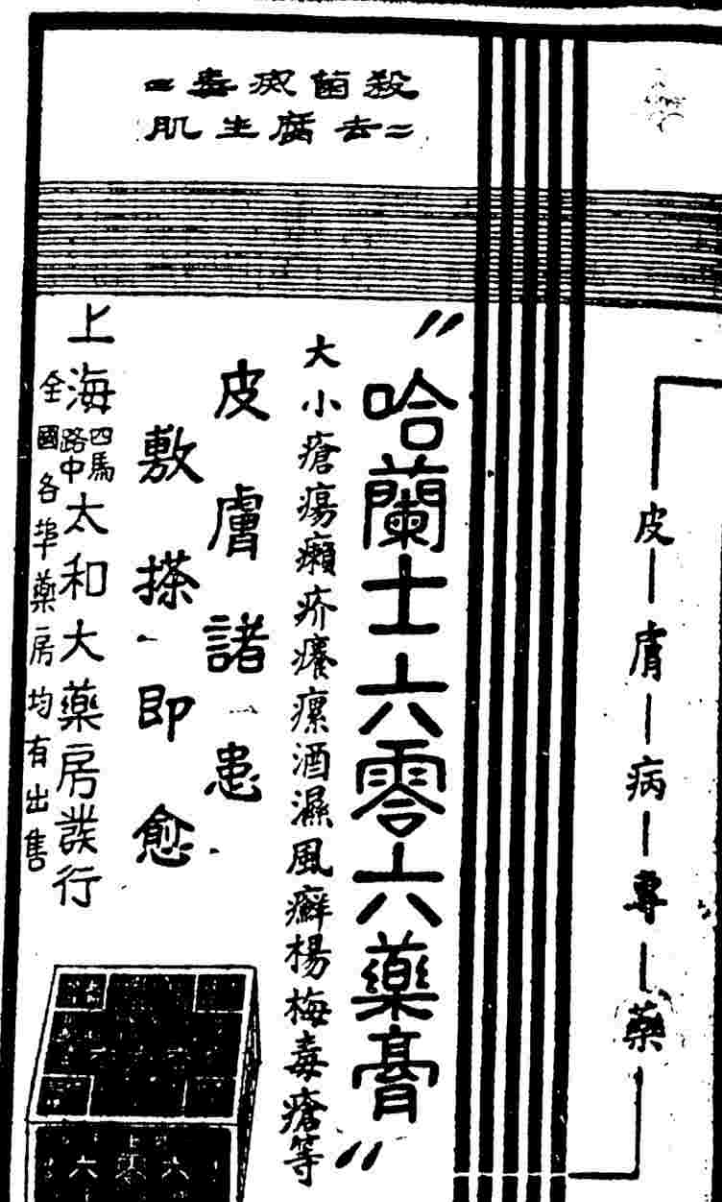 殺菌滅毒
去腐生肌
皮—膚—病—專—藥
"哈蘭士六零六藥膏"
大小瘡瘍癩疥癢瘰酒濕風癬楊梅毒瘡等
皮膚諸患
敷搽即愈
上海四馬路中太和大藥房發行
全國各埠藥房均有出售
六零六